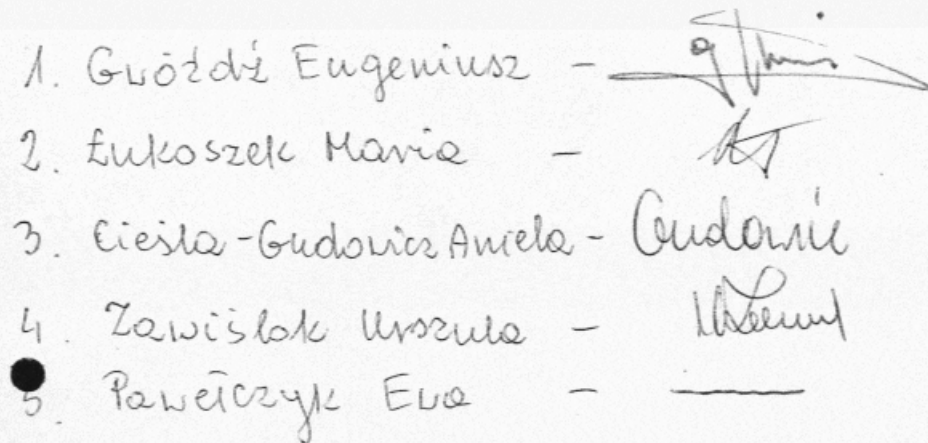 1. Gwóźdź Eugeniusz -
2. Łukoszek Maria -
3. Cieśla-Gudowicz Aniela - Gudowic
4 Zawiślak Urszula -
5. Pawełczyk Ewa - —